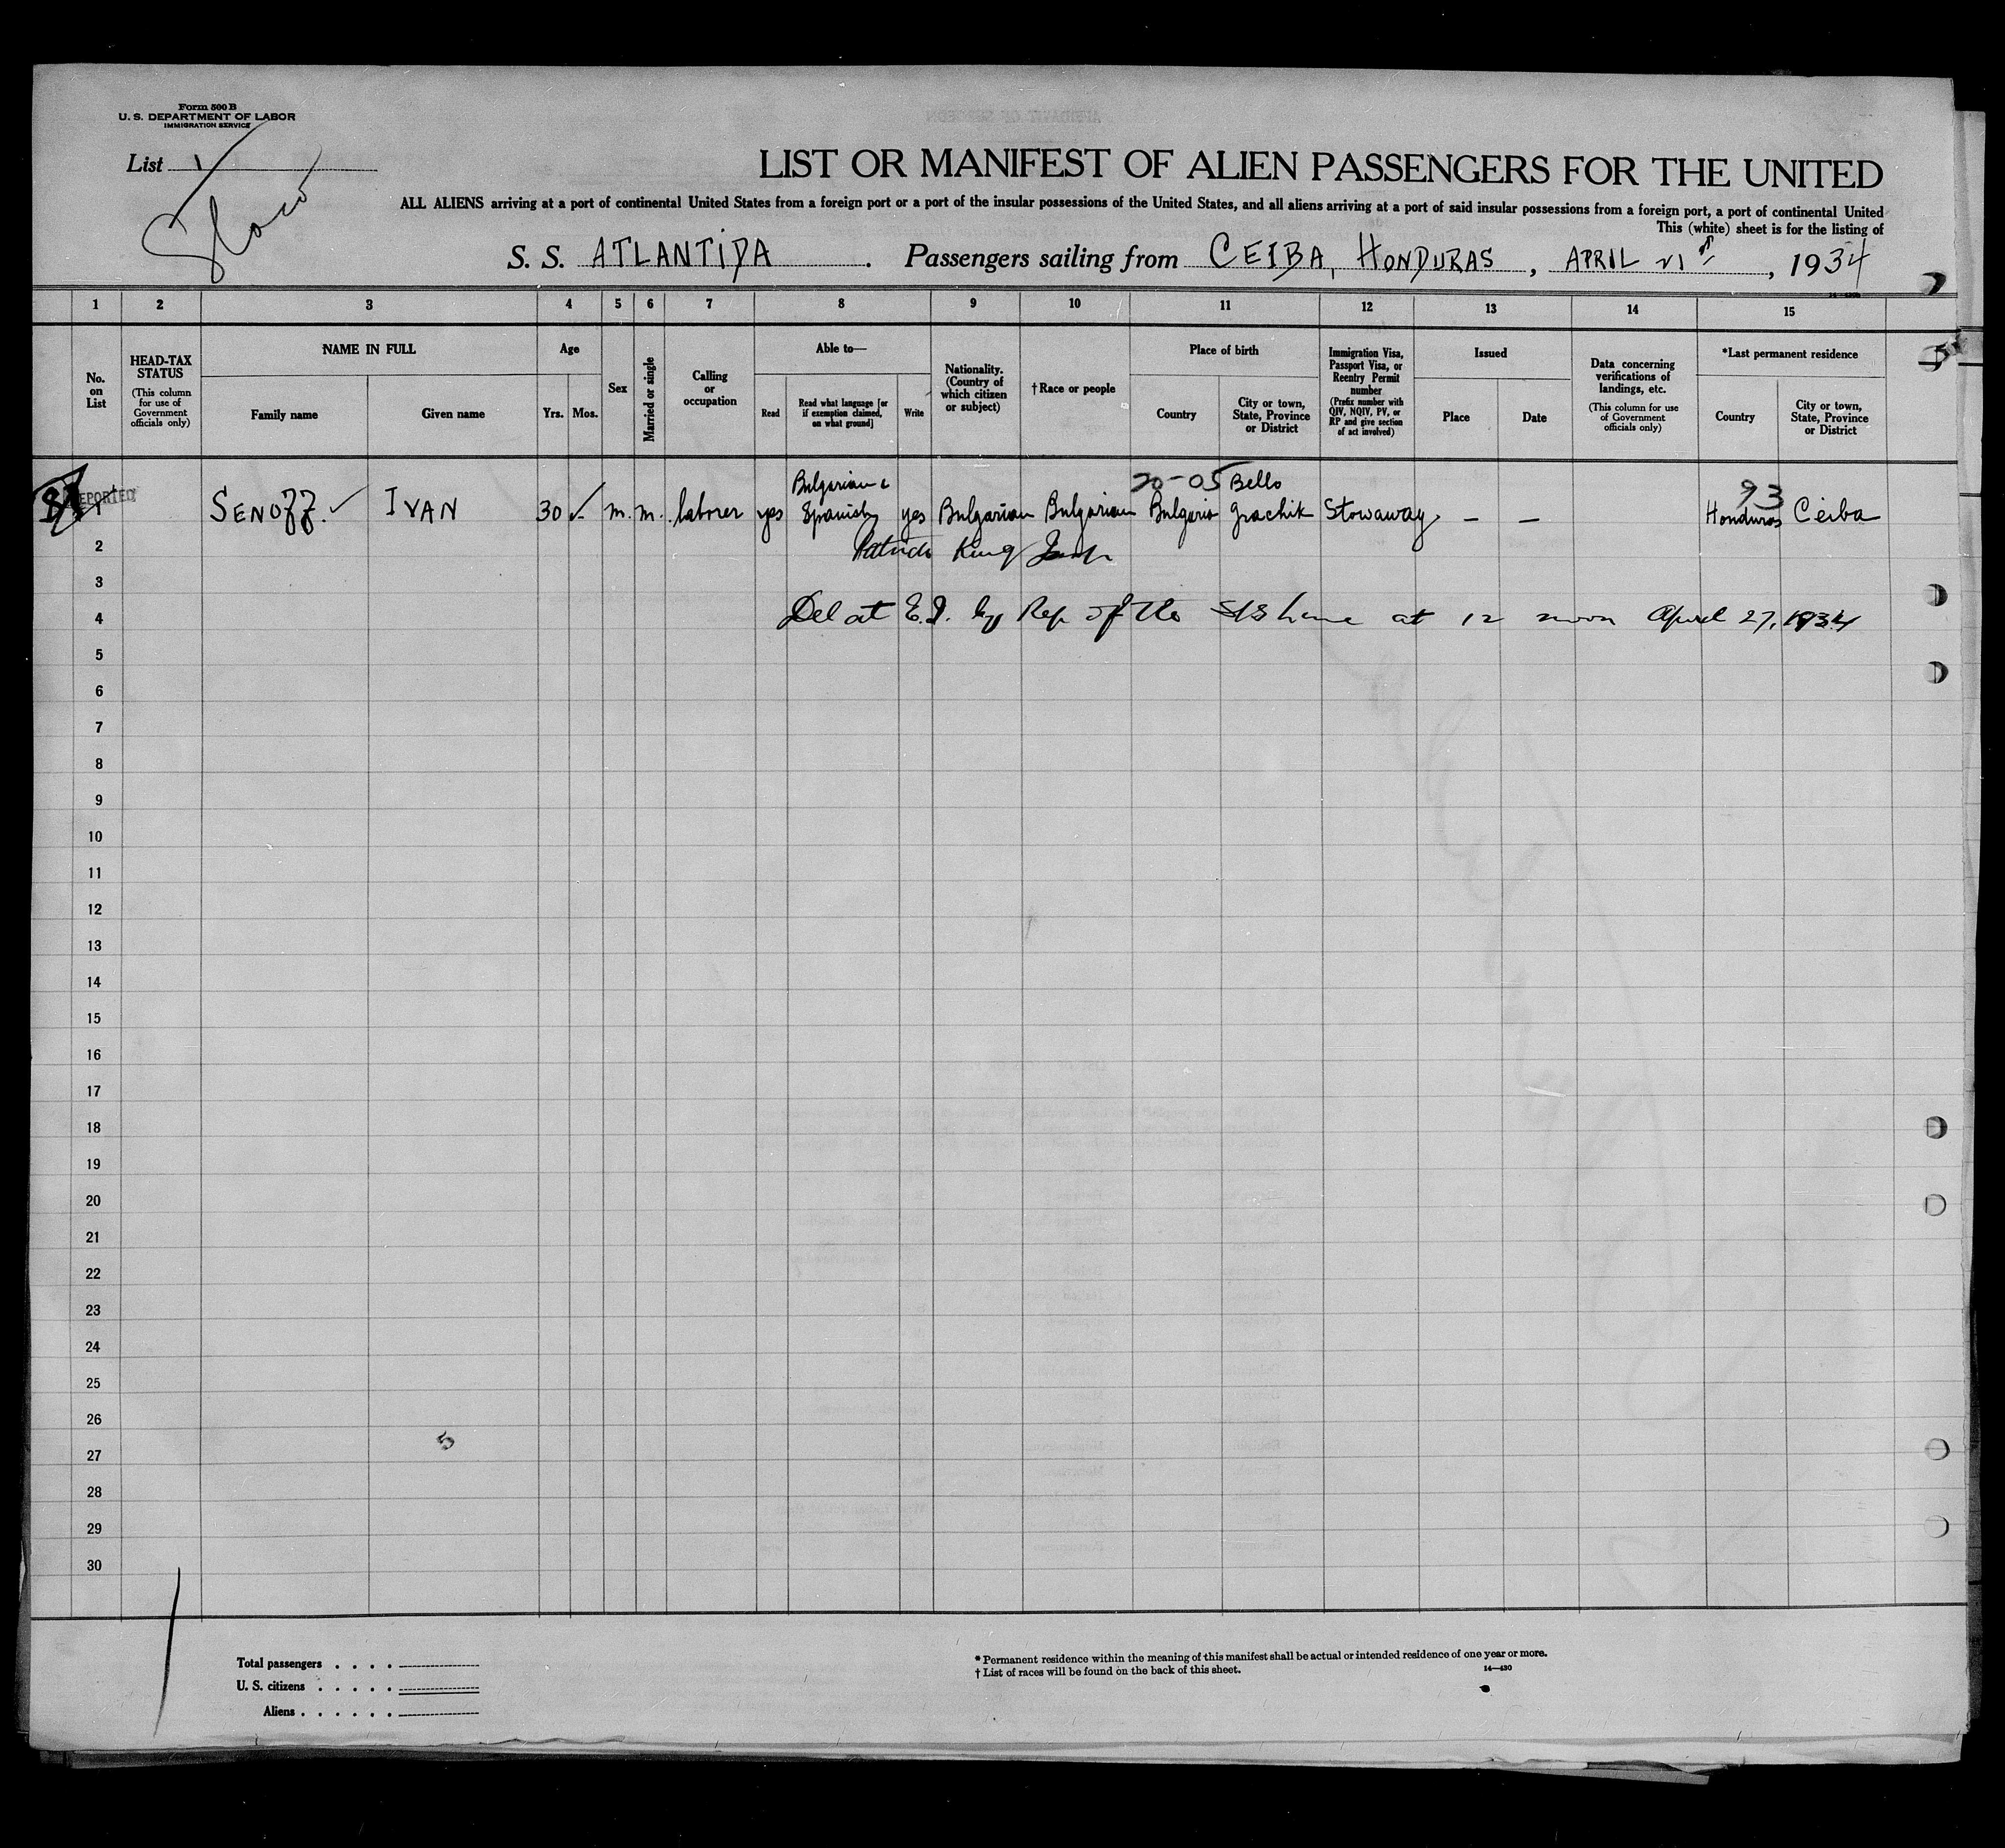 Form 500 B
U. S. DEPARTMENT OF LABOR
IMMIGRATION SERVICE
List 1
LIST OR MANIFEST OF ALIEN PASSENGERS FOR THE UNITED
ALL ALIENS arriving at a port of continental United States from a foreign port or a port of the insular possessions of the United States, and all aliens arriving at a port of said insular possessions from a foreign port, a port of continental United
This (white) sheet is for the listing of
S. S. ATLANTIDA . Passengers sailing from CEIBA, HONDURAS , APRIL 21st , 1934
1 2 3 4 5 6 7 8 9 10 11 12 13 14 15
No. on List
HEAD-TAX STATUS
(This column for use of Government officials only)
NAME IN FULL
Family name
Given name
Age
Yrs. Mos.
Sex
Married or single
Calling or occupation
Able to—
Read
Read what language [or if exemption claimed, on what ground]
Write
Nationality. (Country of which citizen or subject)
†Race or people
Place of birth
Country
City or town, State, Province or District
Immigration Visa, Passport Visa, or Reentry Permit number
(Prefix number with QIV, NQIV, PV, or RP and give section of act involved)
Issued
Place
Date
Data concerning verifications of landings, etc.
(This column for use of Government officials only)
*Last permanent residence
Country
City or town, State, Province or District
Bulgarian & 20-05 Bello 93
1 SENOFF IVAN 30 m. m. laborer yes Spanish yes Bulgarian Bulgarian Bulgaria Grachik Stowaway — — Honduras Ceiba
2 King
3
4 Del at E.I. by Rep of the SS line at 12 noon April 27, 1934
5
6
7
8
9
10
11
12
13
14
15
16
17
18
19
20
21
22
23
24
25
26
5
27
28
29
30
Total passengers . . . .
U. S. citizens . . . . .
Aliens . . . . . .
* Permanent residence within the meaning of this manifest shall be actual or intended residence of one year or more.
† List of races will be found on the back of this sheet.
14—430